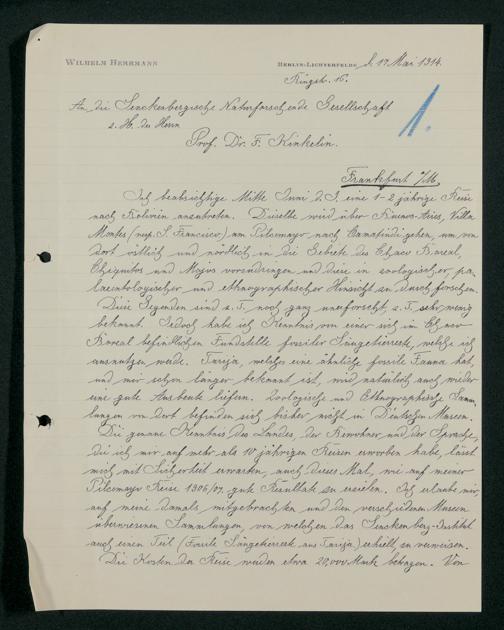 WILHELM HERRMANN
BERLIN-LICHTERFELDE, d. 17. Mai 1914.
Ringstr. 16.
An die Senckenbergische Naturforschende Gesellschaft
z. H. des Herrn
Prof. Dr. F. Kinkelin.
1.
Frankfurt /M.
Ich beabsichtige Mitte Juni d. J. eine 1-2 jährige Reise
nach Bolivien anzutreten. Dieselbe wird über Buenos-Aires, Villa
Montes (resp. S. Francisco) am Pilcomayo nach gehen, um von
dort östlich und nördlich in die Gebiete des Chaco Boreal,
Chiquitos und Mojos vorzudringen und diese in zoologischer, pa-
laeontologischer und ethnographischer Hinsicht zu durchforschen.
Diese Gegenden sind z. T. noch ganz unerforscht, z. T. sehr wenig
bekannt. Jedoch habe ich Kenntnis von einer sich im Chaco
Boreal befindlichen Fundstelle fossiler Säugetierreste, welche ich
ausnutzen werde. Tarija, welches eine ähnliche fossile Fauna hat,
und mir schon länger bekannt ist, wird natürlich auch wieder
eine gute Ausbeute liefern. Zoologische und Ethnographische Samm-
lungen von dort befinden sich bisher nicht in Deutschen Museen.
Die genaue Kenntnis des Landes, der Bewohner und der Sprache,
die ich mir auf mehr als 10 jährigen Reisen erworben habe, lässt
mich mit Sicherheit erwarten, auch dieses Mal, wie auf meiner
Pilcomayo Reise 1906/07, gute Resultate zu erzielen. Ich erlaube mir,
auf meine damals mitgebrachten und den verschiedenen Museen
überwiesenen Sammlungen, von welchen das Senckenberg-Institut
auch einen Teil (Fossile Säugetierreste aus Tarija) erhielt, zu verweisen.
Die Kosten der Reise werden etwa 20,000 Mark betragen. Von